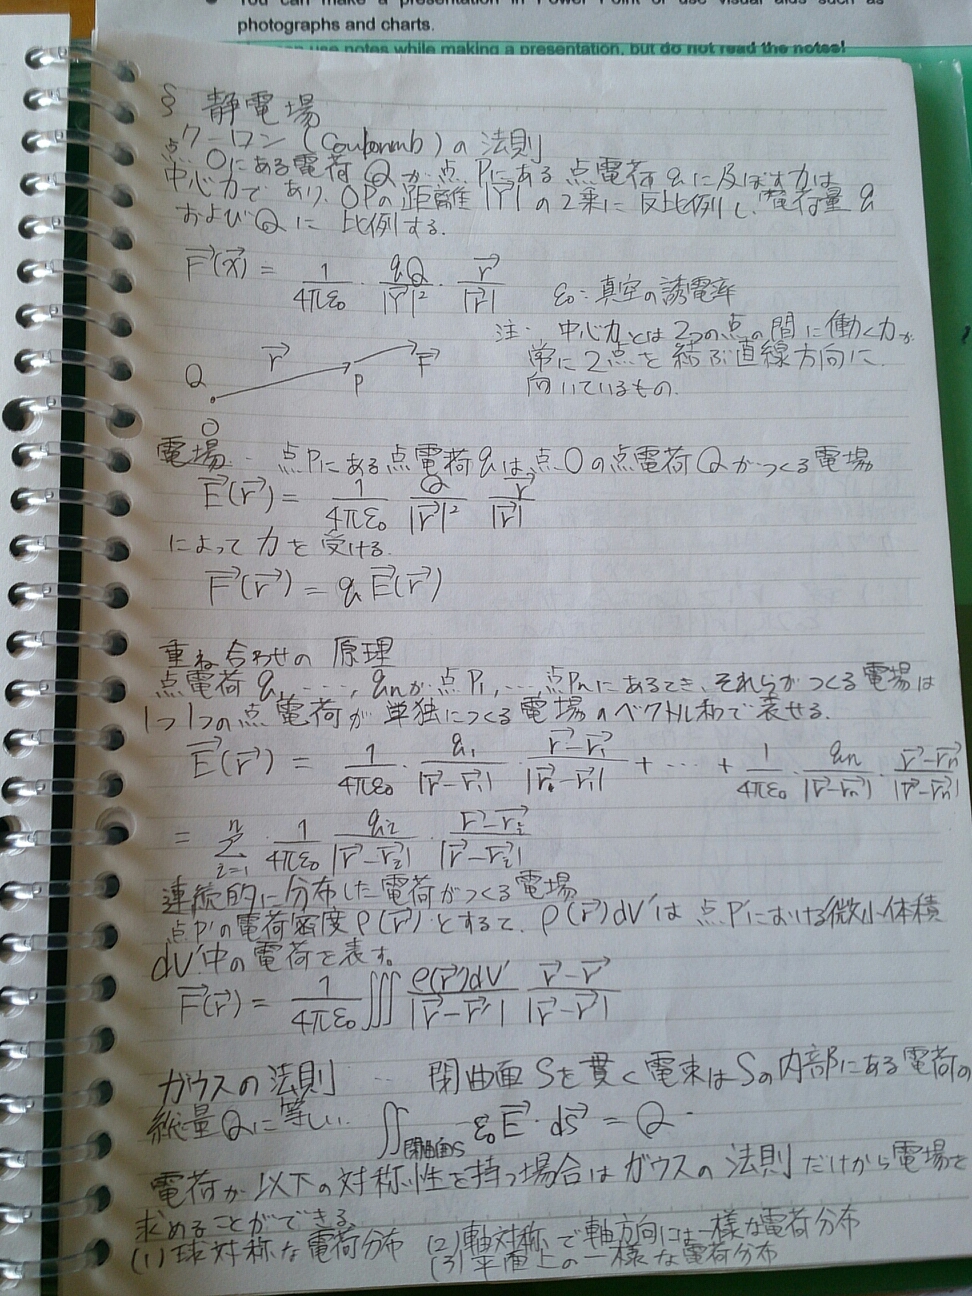 You can make a presentation in Power Point or use visual aids such as
photographs and charts.
use notes while making a presentation, but do not read the notes!
§ 静電場
クーロン (Coulonmb) の法則
点Oにある電荷Qが点Pにある点電荷qに及ぼす力は
中心力であり、OPの距離|r→|の2乗に反比例し、電荷量q
およびQに比例する.
F→(x→) = 1/4πε0 · qQ/|r→|² · r→/|r→|
ε0:真空の誘電率
注・ 中心力とは2つの点の間に働く力が
常に2点を結ぶ直線方向に
向いているもの.
Q r→ P F→
O
電場・ 点Pにある点電荷qは点Oの点電荷Qがつくる電場
E→(r→) = 1/4πε0 Q/|r→|² r→/|r→|
によって力を受ける.
F→(r→) = q E→(r→)
重ね合わせの原理
点電荷q1, ..., qnが点P1, ... 点Pnにあるとき、それらがつくる電場は
1つ1つの点電荷が単独につくる電場のベクトル和で表せる.
E→(r→) = 1/4πε0 · q1/|r→-r1→| · r→-r1→/|r→-r1→| + ... + 1/4πε0 · qn/|r→-rn→| · r→-rn→/|r→-rn→|
= Σ i=1 n · 1/4πε0 qi/|r→-ri→| · r→-ri→/|r→-ri→|
連続的に分布した電荷がつくる電場
点P'の電荷密度ρ(r→)とすると、ρ(r→)dV'は点P'における微小体積
dV'中の電荷を表す。
F→(r→) = 1/4πε0 ∭ ρ(r→')dV'/|r→-r→'| r→-r→/|r→-r→'|
ガウスの法則 … 閉曲面Sを貫く電束はSの内部にある電荷の
総量Qに等しい. ∬閉曲面S ε0E→·dS→ = Q
電荷が以下の対称性を持つ場合はガウスの法則だけから電場を
求めることができる
(1) 球対称な電荷分布 (2) 軸対称で軸方向には一様な電荷分布
(3) 平面上の一様な電荷分布